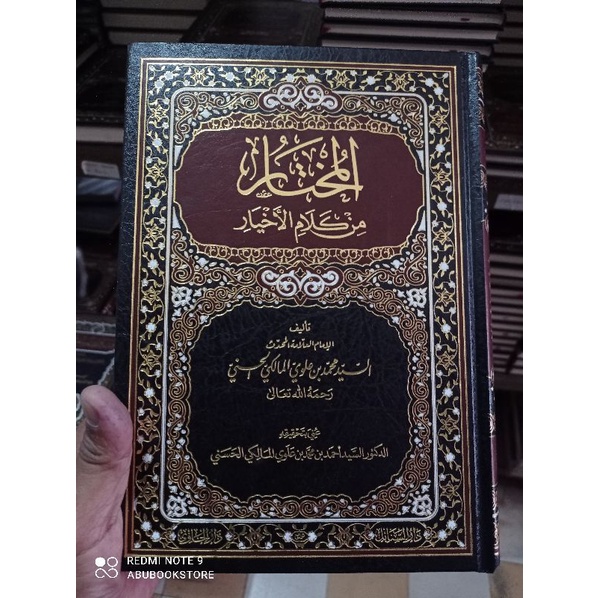 المختار
من كلام الأخيار
تأليف
الإمام العلامة المحدث
السيد محمد بن علوي المالكي الحسني
رحمه الله تعالى
عني بتحقيقه
الدكتور السيد أحمد بن محمد بن علوي المالكي الحسني
REDMI NOTE 9
ABUBOOKSTORE